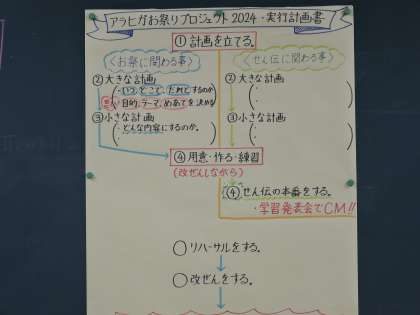 アラヒガお祭りプロジェクト2024・実行計画書
①計画を立てる。
〈お祭に関わる事〉
②大きな計画
・いつ、どこで、だれとするのか
・目的、テーマ、めあてを決める
③小さな計画
・どんな内容にするのか。
〈せん伝に関わる事〉
②大きな計画
③小さな計画
④用意・作る・練習
(改ぜんしながら)
④せん伝の本番をする。
・学習発表会でCM!!
○リハーサルをする。
○改ぜんをする。